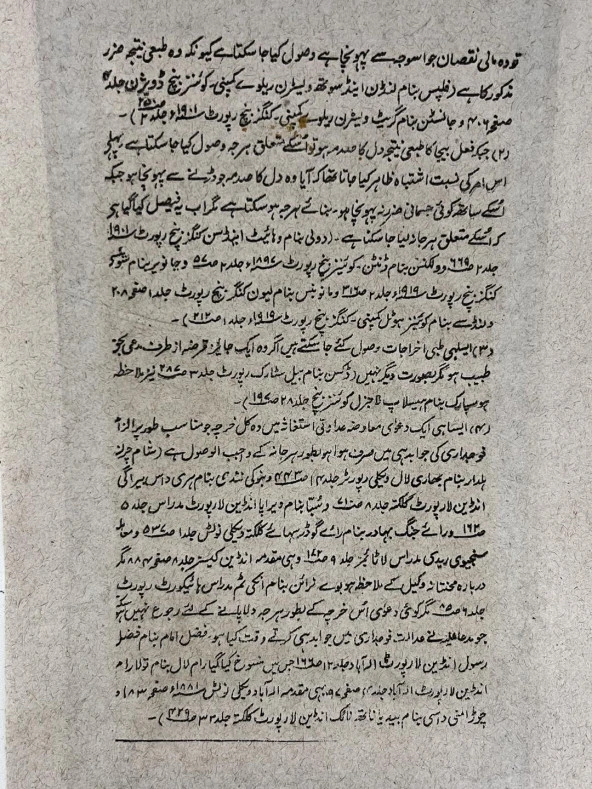 تو وہ مالی نقصان جو اسوجہ سے پہونچا ہے وصول کیا جا سکتا ہے کیونکہ وہ طبعی نتیجہ ضرر
مذکور کا ہے (فلپس بنام لنڈن اینڈ سوتھ ویسٹرن ریلوے کمپنی۔ کوئنز بنچ ڈویژن جلد ۴
صفحہ ۴۰۶ و جانسٹن بنام گریٹ ویسٹرن ریلوے کمپنی۔ کنگز بنچ رپورٹ ۱۹۰۱ء جلد ۲ ص۲۵۰)۔
(۲) جبکہ فعل بیجا کا طبعی نتیجہ دل کا صدمہ ہو تو اُسکے متعلق ہرجہ وصول کیا جا سکتا ہے پہلے
اس امر کی نسبت اشتباہ ظاہر کیا جاتا تھا کہ آیا وہ دل کا صدمہ جو ڈرنے سے پہونچا ہو جبکہ
اُسکے ساتھ کوئی جسمانی ضرر نہ پہونچا ہو۔ بنائے ہرجہ ہو سکتا ہے مگر اب یہ فیصل کیا گیا ہے
کہ اُسکے متعلق ہرجانہ لیا جا سکتا ہے۔ (دولی بنام وہائیٹ اینڈ سن کنگز بنچ رپورٹ ۱۹۰۱ء
جلد ۲ ص۶۶۹ و ولکنسن بنام ڈنٹن۔ کوئینز بنچ رپورٹ ۱۸۹۷ء جلد ۲ ص۵۷ و جانویر بنام
کنگز بنچ رپورٹ ۱۹۱۹ء جلد ۲ ص۳۱۶ و مانوٹس بنام لیون کنگز بنچ رپورٹ جلد ۱ صفحہ ۲۰۸
بنام کوئینز ہوٹل کمپنی۔ کنگز بنچ رپورٹ ۱۹۱۹ء جلد ۱ ص۲۱۲)۔
(۳) ایسے ہی طبی اخراجات وصول کئے جا سکتے ہیں اگر وہ ایک جائز قرضہ از طرف مدعی بحق
طبیب ہو مگر بصورت دیگر نہیں (ڈکسن بنام بیل سٹارک رپورٹ جلد ۳ ص۲۸۷ نیز ملاحظہ
ہو سپارک بنام ہیسلاپ لا جرنل کوئنز بنچ جلد ۲۸ ص۱۹۷)۔
(۴) ایسا ہی ایک دعویٰ معاوضہ عداوتی استغاثہ میں وہ کل خرچہ جو مناسب طور پر الزام
فوجداری کی جوابدہی میں صرف ہوا ہو بطور ہرجانہ کے واجب الوصول ہے (
بلدار بنام بھاری لال ویکلی رپورٹر جلد ۴ ص۴۴۳ و ہنو کی نندی بنام ہری داس بیراگی
انڈین لا رپورٹ کلکتہ جلد ۸ ص۷۱ و شبا بنام ویراپا انڈین لا رپورٹ مدراس جلد ۵
ص۱۶۲ و رائے جنگ بہادر بنام رائے گوڈر سہائے کلکتہ ویکلی نوٹس جلد ۱ ص۵۳۷ و
سنجیوی ریدی مدراس لا ٹائمز جلد ۹ ص۱۸۲ وہی مقدمہ انڈین کیسز جلد ۸ صفحہ ۸۸۴ مگر
دربارہ محنتانہ وکیل کے ملاحظہ ہووے نرائن بنام مدراس ہائیکورٹ رپورٹ
جلد ۶ ص۸۵ مگر کوئی دعویٰ اُس خرچہ کے بطور ہرجہ دلا پانے کے لئے رجوع نہیں ہو سکتا
جو مدعاعلیہ نے عدالت فوجداری میں جوابدہی کرتے وقت کیا ہو۔ فضل امام بنام فضل
رسول انڈین لا رپورٹ الہ آباد جلد ۱۲ ص۱۶۶ جس میں منسوخ کیا گیا رام لال بنام تولا رام
انڈین لا رپورٹ الہ آباد جلد ۴ صفحہ ۹۷ یہی مقدمہ الہ آباد ویکلی نوٹس ۱۸۸۱ء صفحہ ۸۳) و
چوڑامنی داسی بنام بیدیاناتھ نائک انڈین لا رپورٹ کلکتہ جلد ۳۲ ص۴۲۹)۔